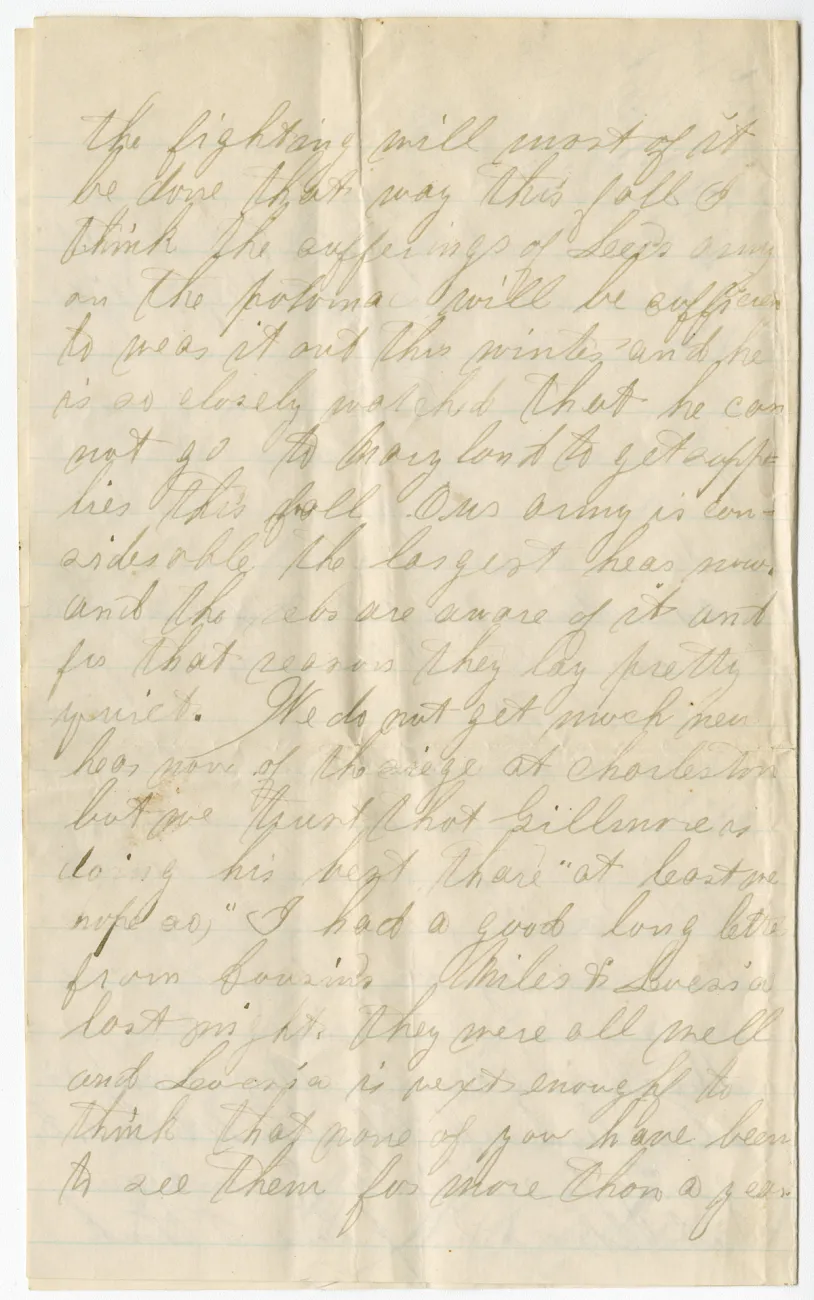 the fighting will most of it
be done that way this fall I
think the sufferings of Lee's army
on the potomac will be sufficien
to wear it out this winter and he
is so closely watched that he can
not go to Maryland to get supp=
lies this fall. Our army is con=
siderable the largest hear now.
and the rebs are aware of it and
for that reason they lay pretty
quiet. We do not get much new
hear now of the siege at Charleston
but we trust that Gillmore is
doing his best thare "at least we
hope so," I had a good long lette
from Cousins Miles & Lucria
last night. they were all well
and Lucria is vext enough to
think that none of you have been
to see them for more than a year